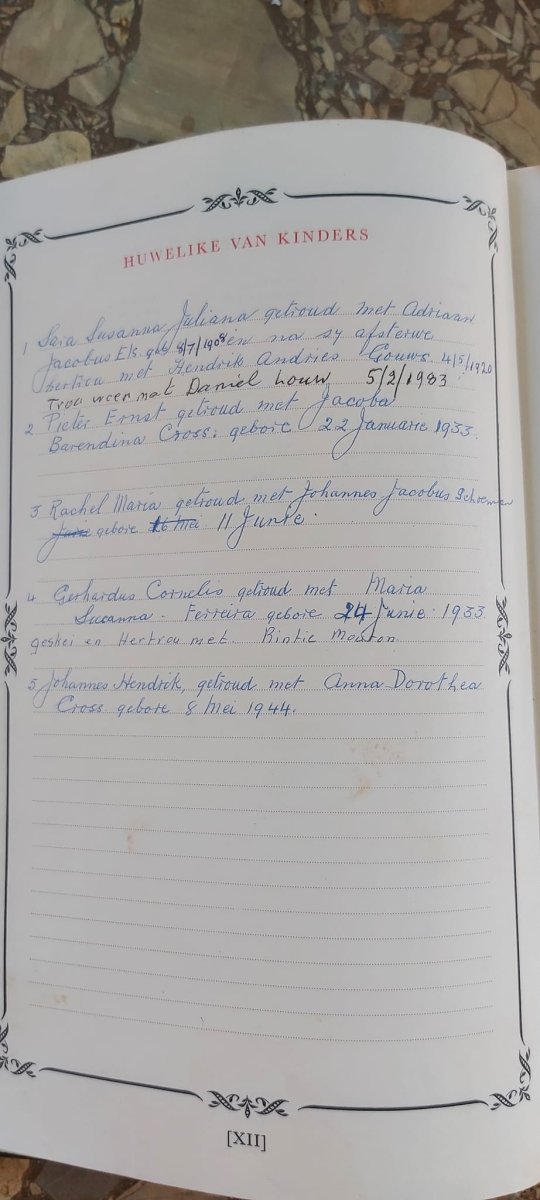 HUWELIKE VAN KINDERS
1 Sara Susanna Juliana getroud met Adriaan
Jacobus Els. geb 8/7/1908 en na sy afsterwe
hertrou met Hendrik Andries Gouws. 4/5/1920
Trou weer met Daniel Louw 5/2/1983
2. Pieter Ernst getroud met Jacoba
Barendina Cross: gebore 22 Januarie 1933.
3. Rachel Maria getroud met Johannes Jacobus Schoeman
Junie gebore 16 Mei 11 Junie.
4. Gerhardus Cornelis getroud met Maria
Susanna. Ferreira gebore 24 Junie. 1933
geskei en Hertrou met. Rintie Mouton
5. Johannes Hendrik, getroud met Anna Dorothea
Cross gebore 8 Mei 1944.
[XII]